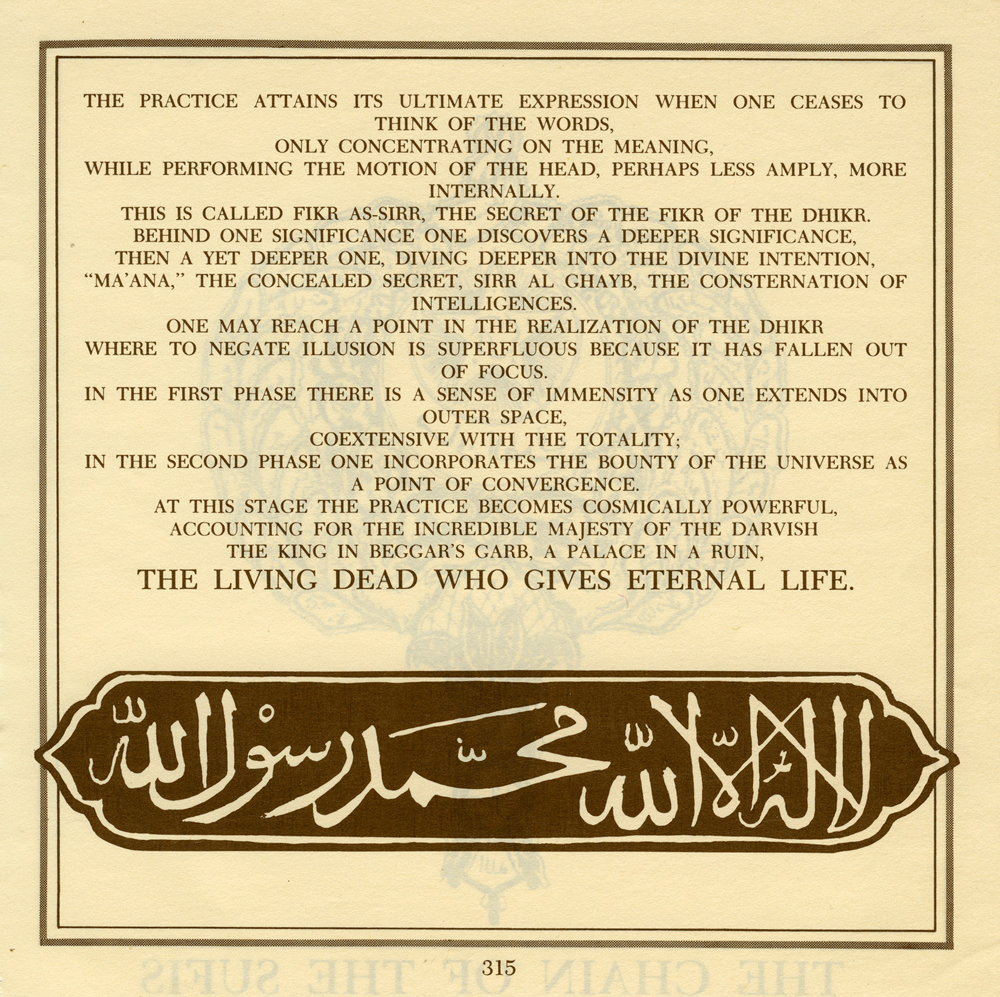 THE PRACTICE ATTAINS ITS ULTIMATE EXPRESSION WHEN ONE CEASES TO
THINK OF THE WORDS,
ONLY CONCENTRATING ON THE MEANING,
WHILE PERFORMING THE MOTION OF THE HEAD, PERHAPS LESS AMPLY, MORE
INTERNALLY.
THIS IS CALLED FIKR AS-SIRR, THE SECRET OF THE FIKR OF THE DHIKR.
BEHIND ONE SIGNIFICANCE ONE DISCOVERS A DEEPER SIGNIFICANCE,
THEN A YET DEEPER ONE, DIVING DEEPER INTO THE DIVINE INTENTION,
“MA’ANA,” THE CONCEALED SECRET, SIRR AL GHAYB, THE CONSTERNATION OF
INTELLIGENCES.
ONE MAY REACH A POINT IN THE REALIZATION OF THE DHIKR
WHERE TO NEGATE ILLUSION IS SUPERFLUOUS BECAUSE IT HAS FALLEN OUT
OF FOCUS.
IN THE FIRST PHASE THERE IS A SENSE OF IMMENSITY AS ONE EXTENDS INTO
OUTER SPACE,
COEXTENSIVE WITH THE TOTALITY;
IN THE SECOND PHASE ONE INCORPORATES THE BOUNTY OF THE UNIVERSE AS
A POINT OF CONVERGENCE.
AT THIS STAGE THE PRACTICE BECOMES COSMICALLY POWERFUL,
ACCOUNTING FOR THE INCREDIBLE MAJESTY OF THE DARVISH
THE KING IN BEGGAR’S GARB, A PALACE IN A RUIN,
THE LIVING DEAD WHO GIVES ETERNAL LIFE.
لا اله الا الله محمد رسول الله
315
THE CHAIN OF THE SUFIS